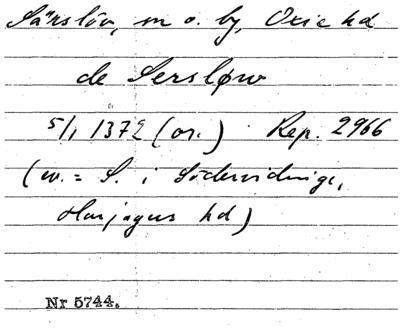 Särslöv, sn o. by, Oxie hd
de Sersløw
5/1 1372 (or.) Rep. 2966
(ev. = S. i Södervidinge,
Harjagers hd)
Nr 5744.